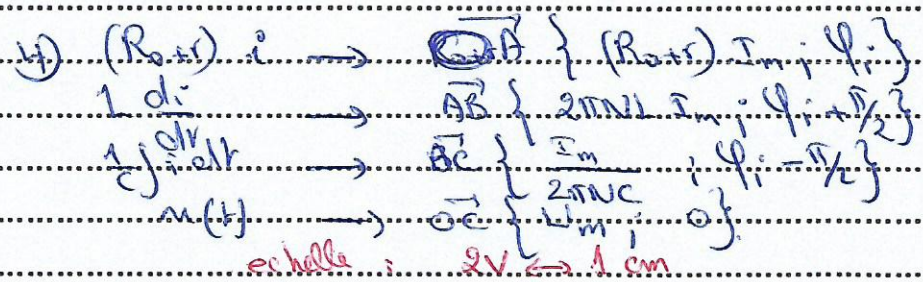 4) (R₀+r) i → OA { (R₀+r) Iₘ ; φᵢ }
L di/dt → AB { 2πNL Iₘ ; φᵢ + π/2 }
1/C ∫ i dt → BC { Iₘ/2πNC ; φᵢ - π/2 }
u(t) → OC { Uₘ ; 0 }
echelle : 2V ↔ 1 cm